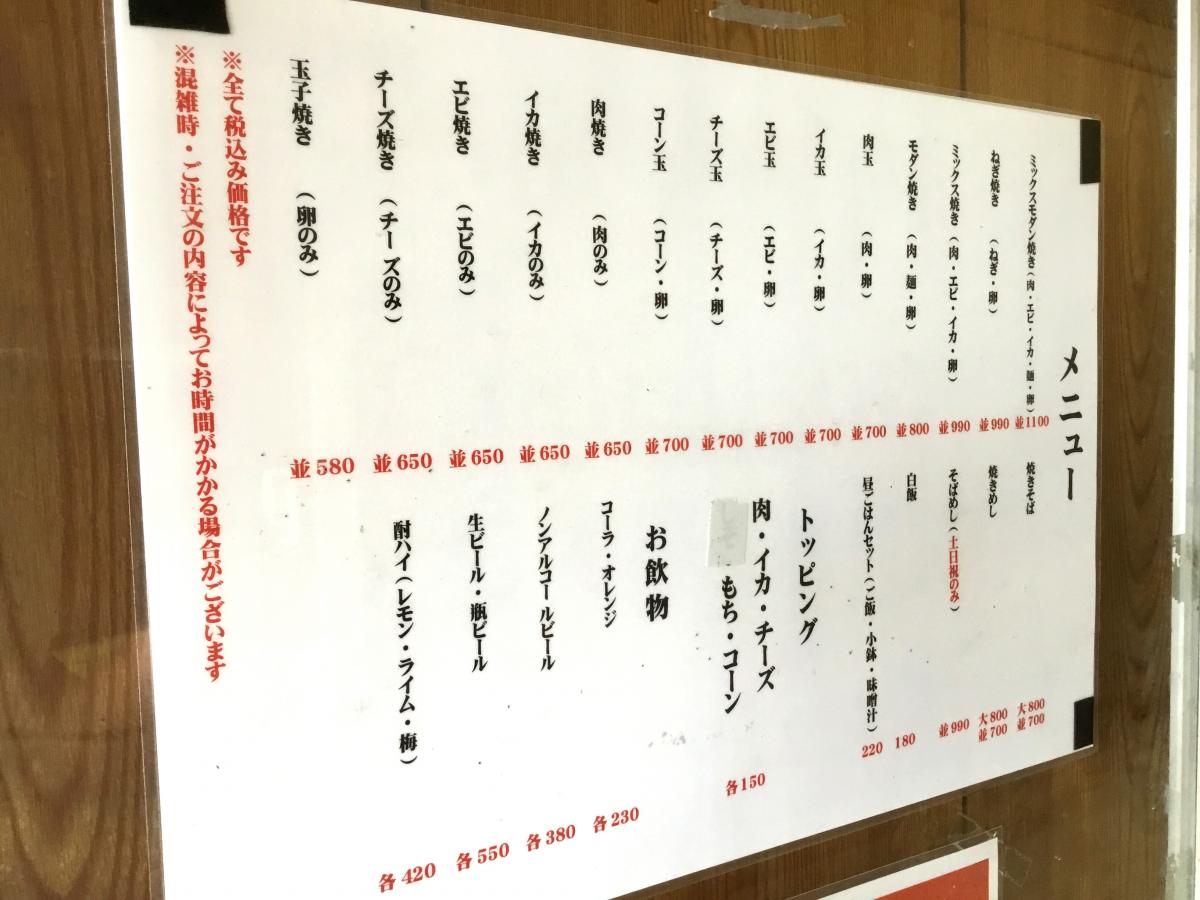 メニュー
ミックスモダン焼き(肉・エビ・イカ・麺・卵) 並1100
ねぎ焼き (ねぎ・卵) 並990
ミックス焼き(肉・エビ・イカ・卵) 並990
モダン焼き (肉・麺・卵) 並800
肉玉 (肉・卵) 並700
イカ玉 (イカ・卵) 並700
エビ玉 (エビ・卵) 並700
チーズ玉 (チーズ・卵) 並700
コーン玉 (コーン・卵) 並700
肉焼き (肉のみ) 並650
イカ焼き (イカのみ) 並650
エビ焼き (エビのみ) 並650
チーズ焼き (チーズのみ) 並650
玉子焼き (卵のみ) 並580
焼きそば 大800 並700
焼きめし 大800 並700
そばめし(土日祝のみ) 並990
白飯 180
昼ごはんセット(ご飯・小鉢・味噌汁) 220
トッピング
肉・イカ・チーズ
もち・コーン 各150
お飲物
コーラ・オレンジ 各230
ノンアルコールビール 各380
生ビール・瓶ビール 各550
酎ハイ(レモン・ライム・梅) 各420
※全て税込み価格です
※混雑時・ご注文の内容によってお時間がかかる場合がございます